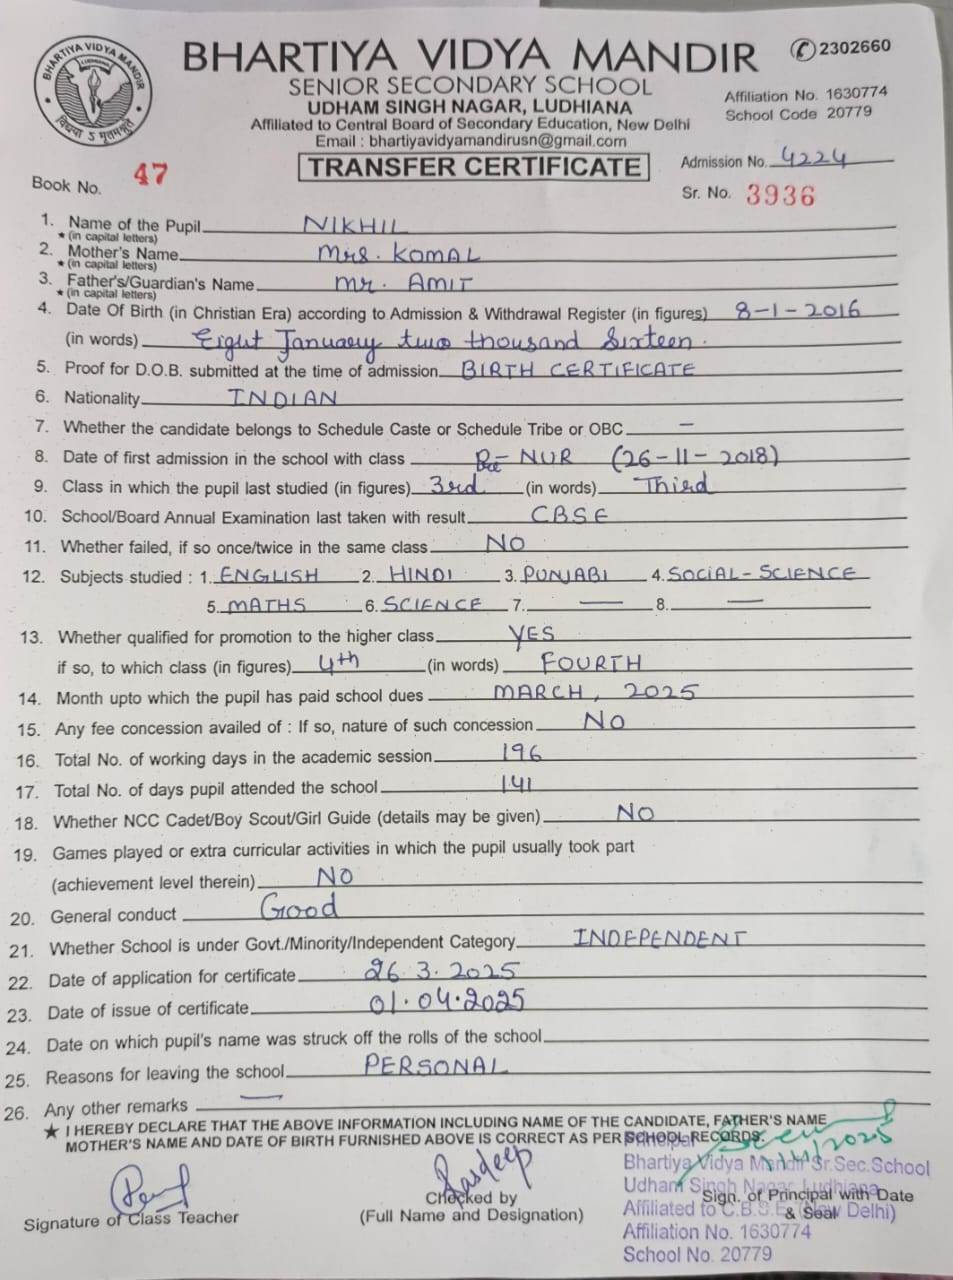 BHARTIYA VIDYA MANDIR
BHARTIYA VIDYA MANDIR ✆2302660
SENIOR SECONDARY SCHOOL
UDHAM SINGH NAGAR, LUDHIANA
Affiliation No. 1630774
School Code 20779
Affiliated to Central Board of Secondary Education, New Delhi
Email : bhartiyavidyamandirusn@gmail.com
TRANSFER CERTIFICATE
Admission No. 4224
Book No. 47
Sr. No. 3936
1. Name of the Pupil NIKHIL
★ (in capital letters)
2. Mother's Name Mrs. KOMAL
★ (in capital letters)
3. Father's/Guardian's Name Mr. AMIT
★ (in capital letters)
4. Date Of Birth (in Christian Era) according to Admission & Withdrawal Register (in figures) 8-1-2016
(in words) Eight January two thousand Sixteen.
5. Proof for D.O.B. submitted at the time of admission BIRTH CERTIFICATE
6. Nationality INDIAN
7. Whether the candidate belongs to Schedule Caste or Schedule Tribe or OBC —
8. Date of first admission in the school with class Pre-NUR (26-11-2018)
9. Class in which the pupil last studied (in figures) 3rd (in words) Third
10. School/Board Annual Examination last taken with result CBSE
11. Whether failed, if so once/twice in the same class NO
12. Subjects studied : 1. ENGLISH 2. HINDI 3. PUNJABI 4. SOCIAL-SCIENCE
5. MATHS 6. SCIENCE 7. — 8. —
13. Whether qualified for promotion to the higher class YES
if so, to which class (in figures) 4th (in words) FOURTH
14. Month upto which the pupil has paid school dues MARCH, 2025
15. Any fee concession availed of : If so, nature of such concession NO
16. Total No. of working days in the academic session 196
17. Total No. of days pupil attended the school 141
18. Whether NCC Cadet/Boy Scout/Girl Guide (details may be given) NO
19. Games played or extra curricular activities in which the pupil usually took part
(achievement level therein) NO
20. General conduct Good
21. Whether School is under Govt./Minority/Independent Category INDEPENDENT
22. Date of application for certificate 26.3.2025
23. Date of issue of certificate 01.04.2025
24. Date on which pupil's name was struck off the rolls of the school
25. Reasons for leaving the school PERSONAL
26. Any other remarks —
★ I HEREBY DECLARE THAT THE ABOVE INFORMATION INCLUDING NAME OF THE CANDIDATE, FATHER'S NAME
MOTHER'S NAME AND DATE OF BIRTH FURNISHED ABOVE IS CORRECT AS PER SCHOOL RECORDS.
Principal
Bhartiya Vidya Mandir Sr.Sec.School
Udham Singh Nagar Ludhiana
Affiliated to C.B.S.E (New Delhi)
Affiliation No. 1630774
School No. 20779
Signature of Class Teacher
Checked by
(Full Name and Designation)
Sign. of Principal with Date
& Seal